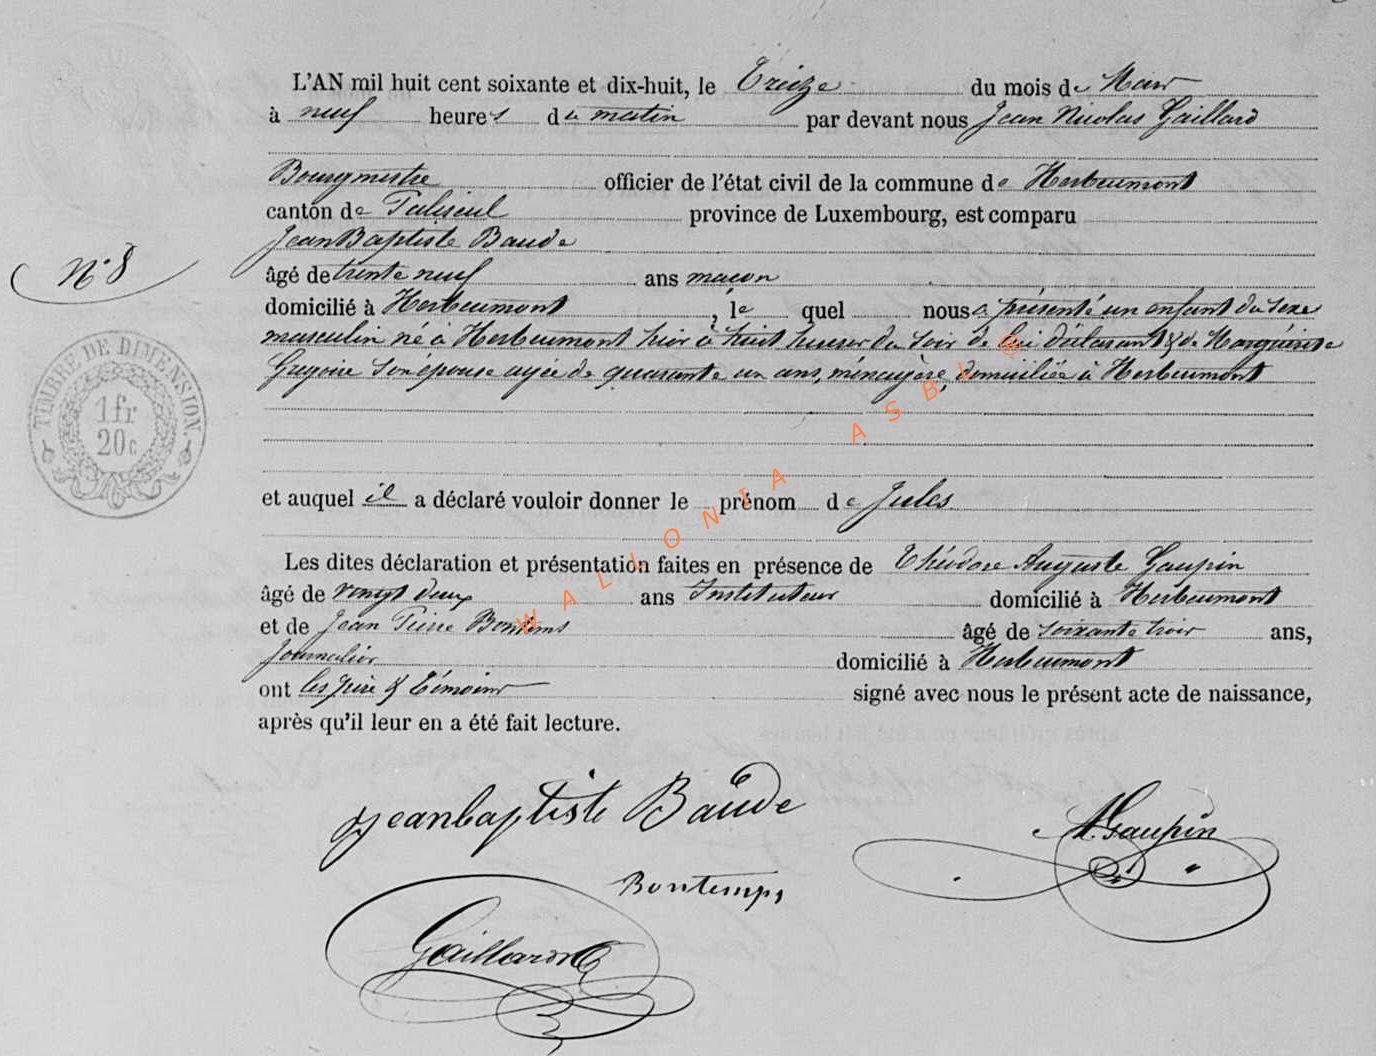 L'AN mil huit cent soixante et dix-huit, le Treize du mois de Mars
à neuf heures du matin par devant nous Jean Nicolas Gaillard
Bourgmestre officier de l'état civil de la commune de Herbeumont
canton de Paliseul province de Luxembourg, est comparu
Jean Baptiste Baude
N° 8
âgé de trente neuf ans maçon
domicilié à Herbeumont, le quel nous a présenté un enfant du sexe
masculin né à Herbeumont hier à huit heures du soir de lui déclarant & de Marguérite
Grégoire son épouse agée de quarante un ans, ménagère, domiciliée à Herbeumont
TIMBRE DE DIMENSION.
1fr
20c
et auquel il a déclaré vouloir donner le prénom de Jules
Les dites déclaration et présentation faites en présence de Théodore Auguste Gaupin
âgé de vingt deux ans Instituteur domicilié à Herbeumont
et de Jean Pierre Bontems âgé de soixante trois ans,
Journalier domicilié à Herbeumont
ont les père & témoins signé avec nous le présent acte de naissance,
après qu'il leur en a été fait lecture.
jeanbaptiste Baude
A. Gaupin
Bontemps
Gaillard
WALLONIA ASBL ®